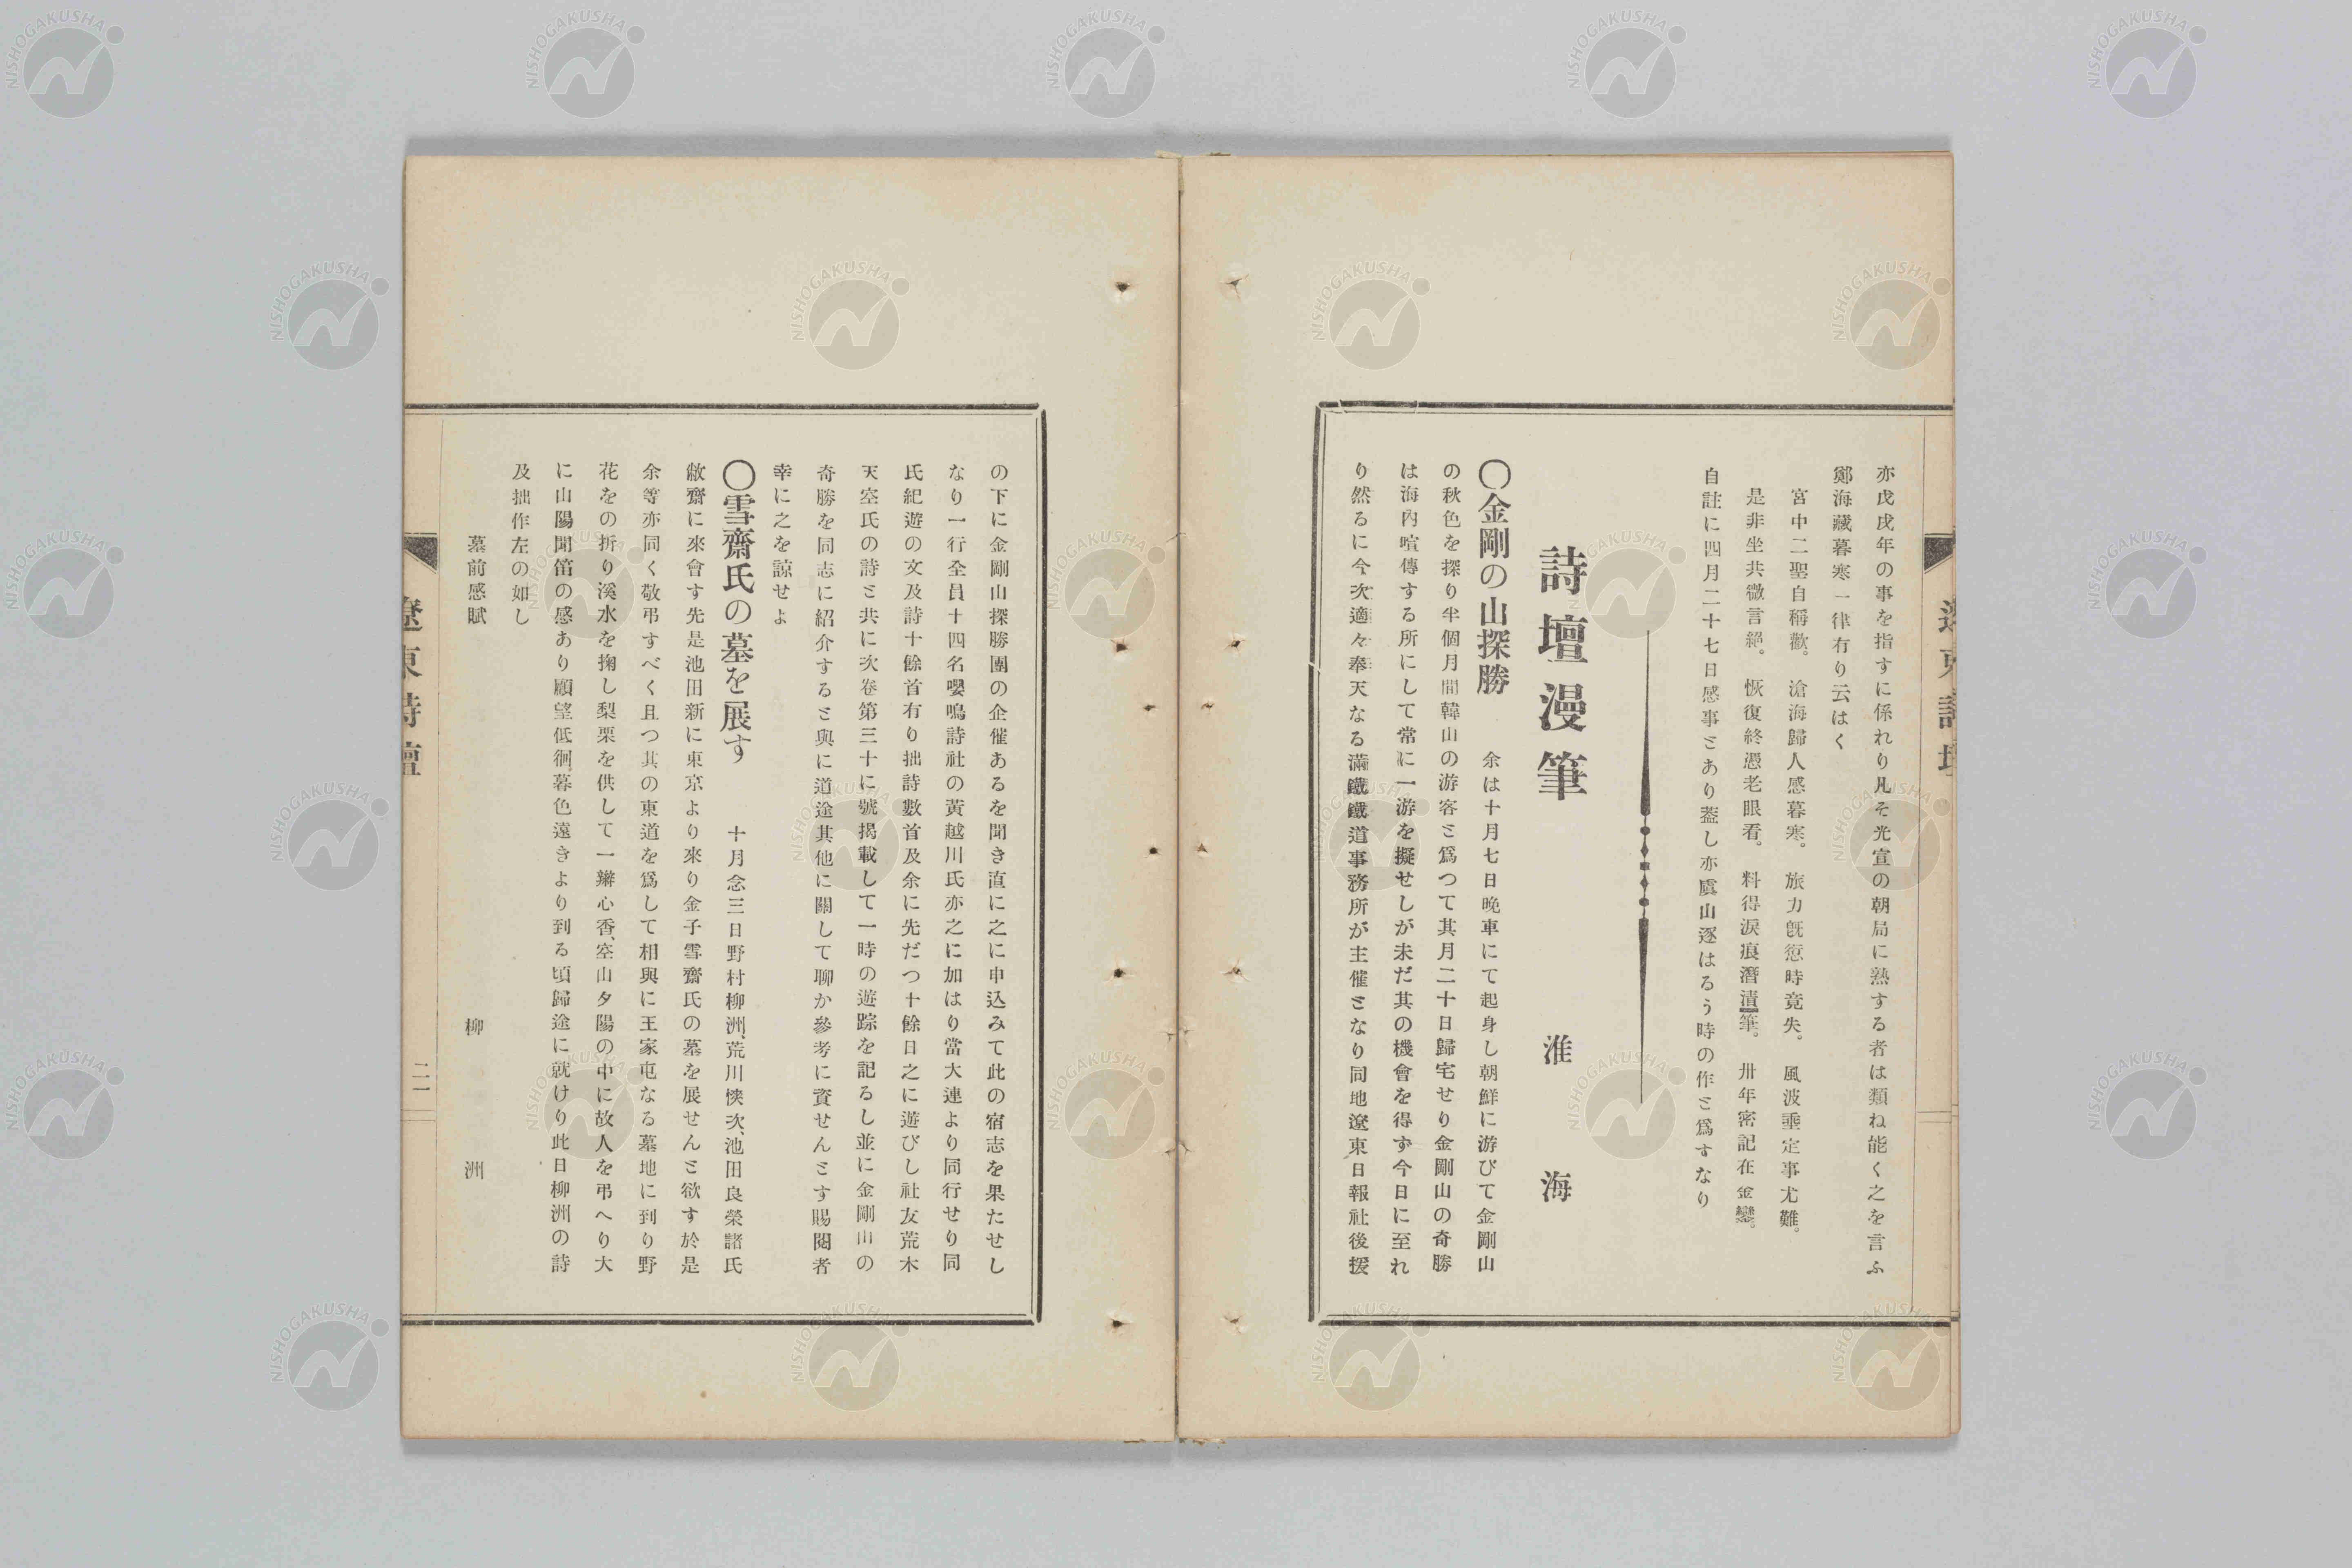 亦戊戌年の事を指すに係れり凡そ光宣の朝局に熟する者は類ね能く之を言ふ
鄭海藏暮寒一律有り云はく
宮中二聖自稱歡。滄海歸人感暮寒。旅力旣愆時竟失。風波垂定事尤難。
是非坐共微言絕。恢復終憑老眼看。料得淚痕潛漬筆。卅年密記在金鑾。
自註に四月二十七日感事とあり蓋し亦虞山逐はるう時の作と爲すなり
詩壇漫筆
淮海
〇金剛の山探勝　余は十月七日晚車にて起身し朝鮮に游びて金剛山
の秋色を探り半個月間韓山の游客と爲つて其月二十日歸宅せり金剛山の奇勝
は海內喧傳する所にして常に一游を擬せしが未だ其の機會を得ず今日に至れ
り然るに今次適々奉天なる滿鐵鐵道事務所が主催となり同地遼東日報社後援
の下に金剛山探勝團の企催あるを聞き直に之に申込みて此の宿志を果たせし
なり一行全員十四名嚶鳴詩社の黃越川氏亦之に加はり當大連より同行せり同
氏紀遊の文及詩十餘首有り拙詩數首及余に先だつ十餘日之に遊びし社友荒木
天空氏の詩と共に次卷第三十に號揭載して一時の遊踪を記るし並に金剛山の
奇勝を同志に紹介すると與に道途其他に關して聊か參考に資せんとす賜閱者
幸に之を諒せよ
〇雪齋氏の墓を展す　十月念三日野村柳洲、荒川悏次、池田良榮諸氏
敝齋に來會す先是池田新に東京より來り金子雪齋氏の墓を展せんと欲す於是
余等亦同く敬弔すべく且つ其の東道を爲して相與に王家屯なる墓地に到り野
花をの折り溪水を掬し梨栗を供して一瓣心香、空山夕陽の中に故人を弔へり大
に山陽聞笛の感あり願望低徊暮色遠きより到る頃歸途に就けり此日柳洲の詩
及拙作左の如し
墓前感賦
柳洲
遼東詩壇
二一
NISHOGAKUSHA